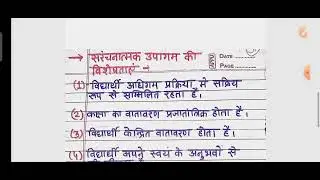 → सरंचनात्मक उपागम की
विशेषताएं :-
DATE
PAGE
(1) विद्यार्थी अधिगम प्रक्रिया में सक्रिय
रूप से सम्मिलित रहता है।
(2) कक्षा का वातावरण प्रजातांत्रिक होता है।
(3) विद्यार्थी केन्द्रित वातावरण होता हैं।
(4) विद्यार्थी अपने स्वयं के अनुभवों से